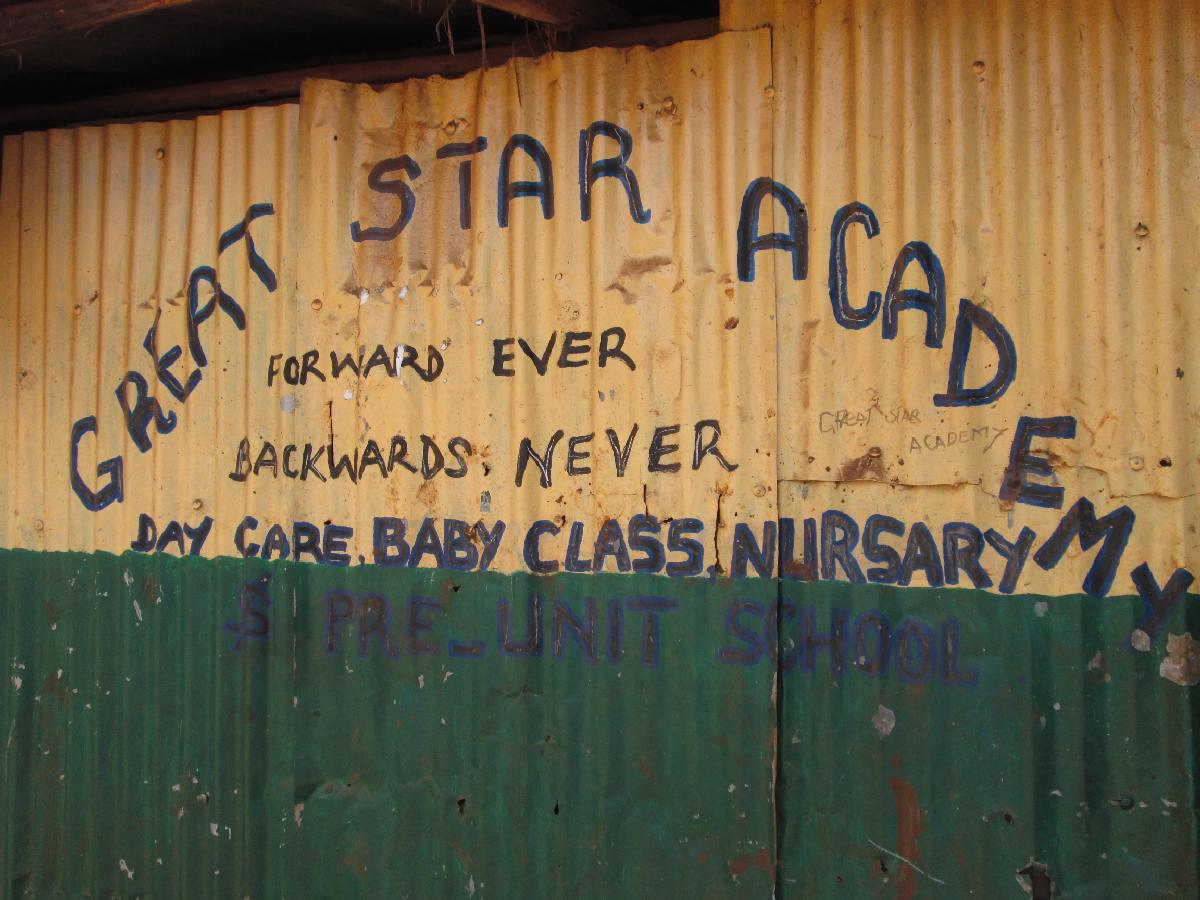 GREAT STAR ACADEMY
FORWARD EVER
BACKWARDS NEVER
GREAT STAR
ACADEMY
DAY CARE, BABY CLASS, NURSARY
$ PRE-UNIT SCHOOL